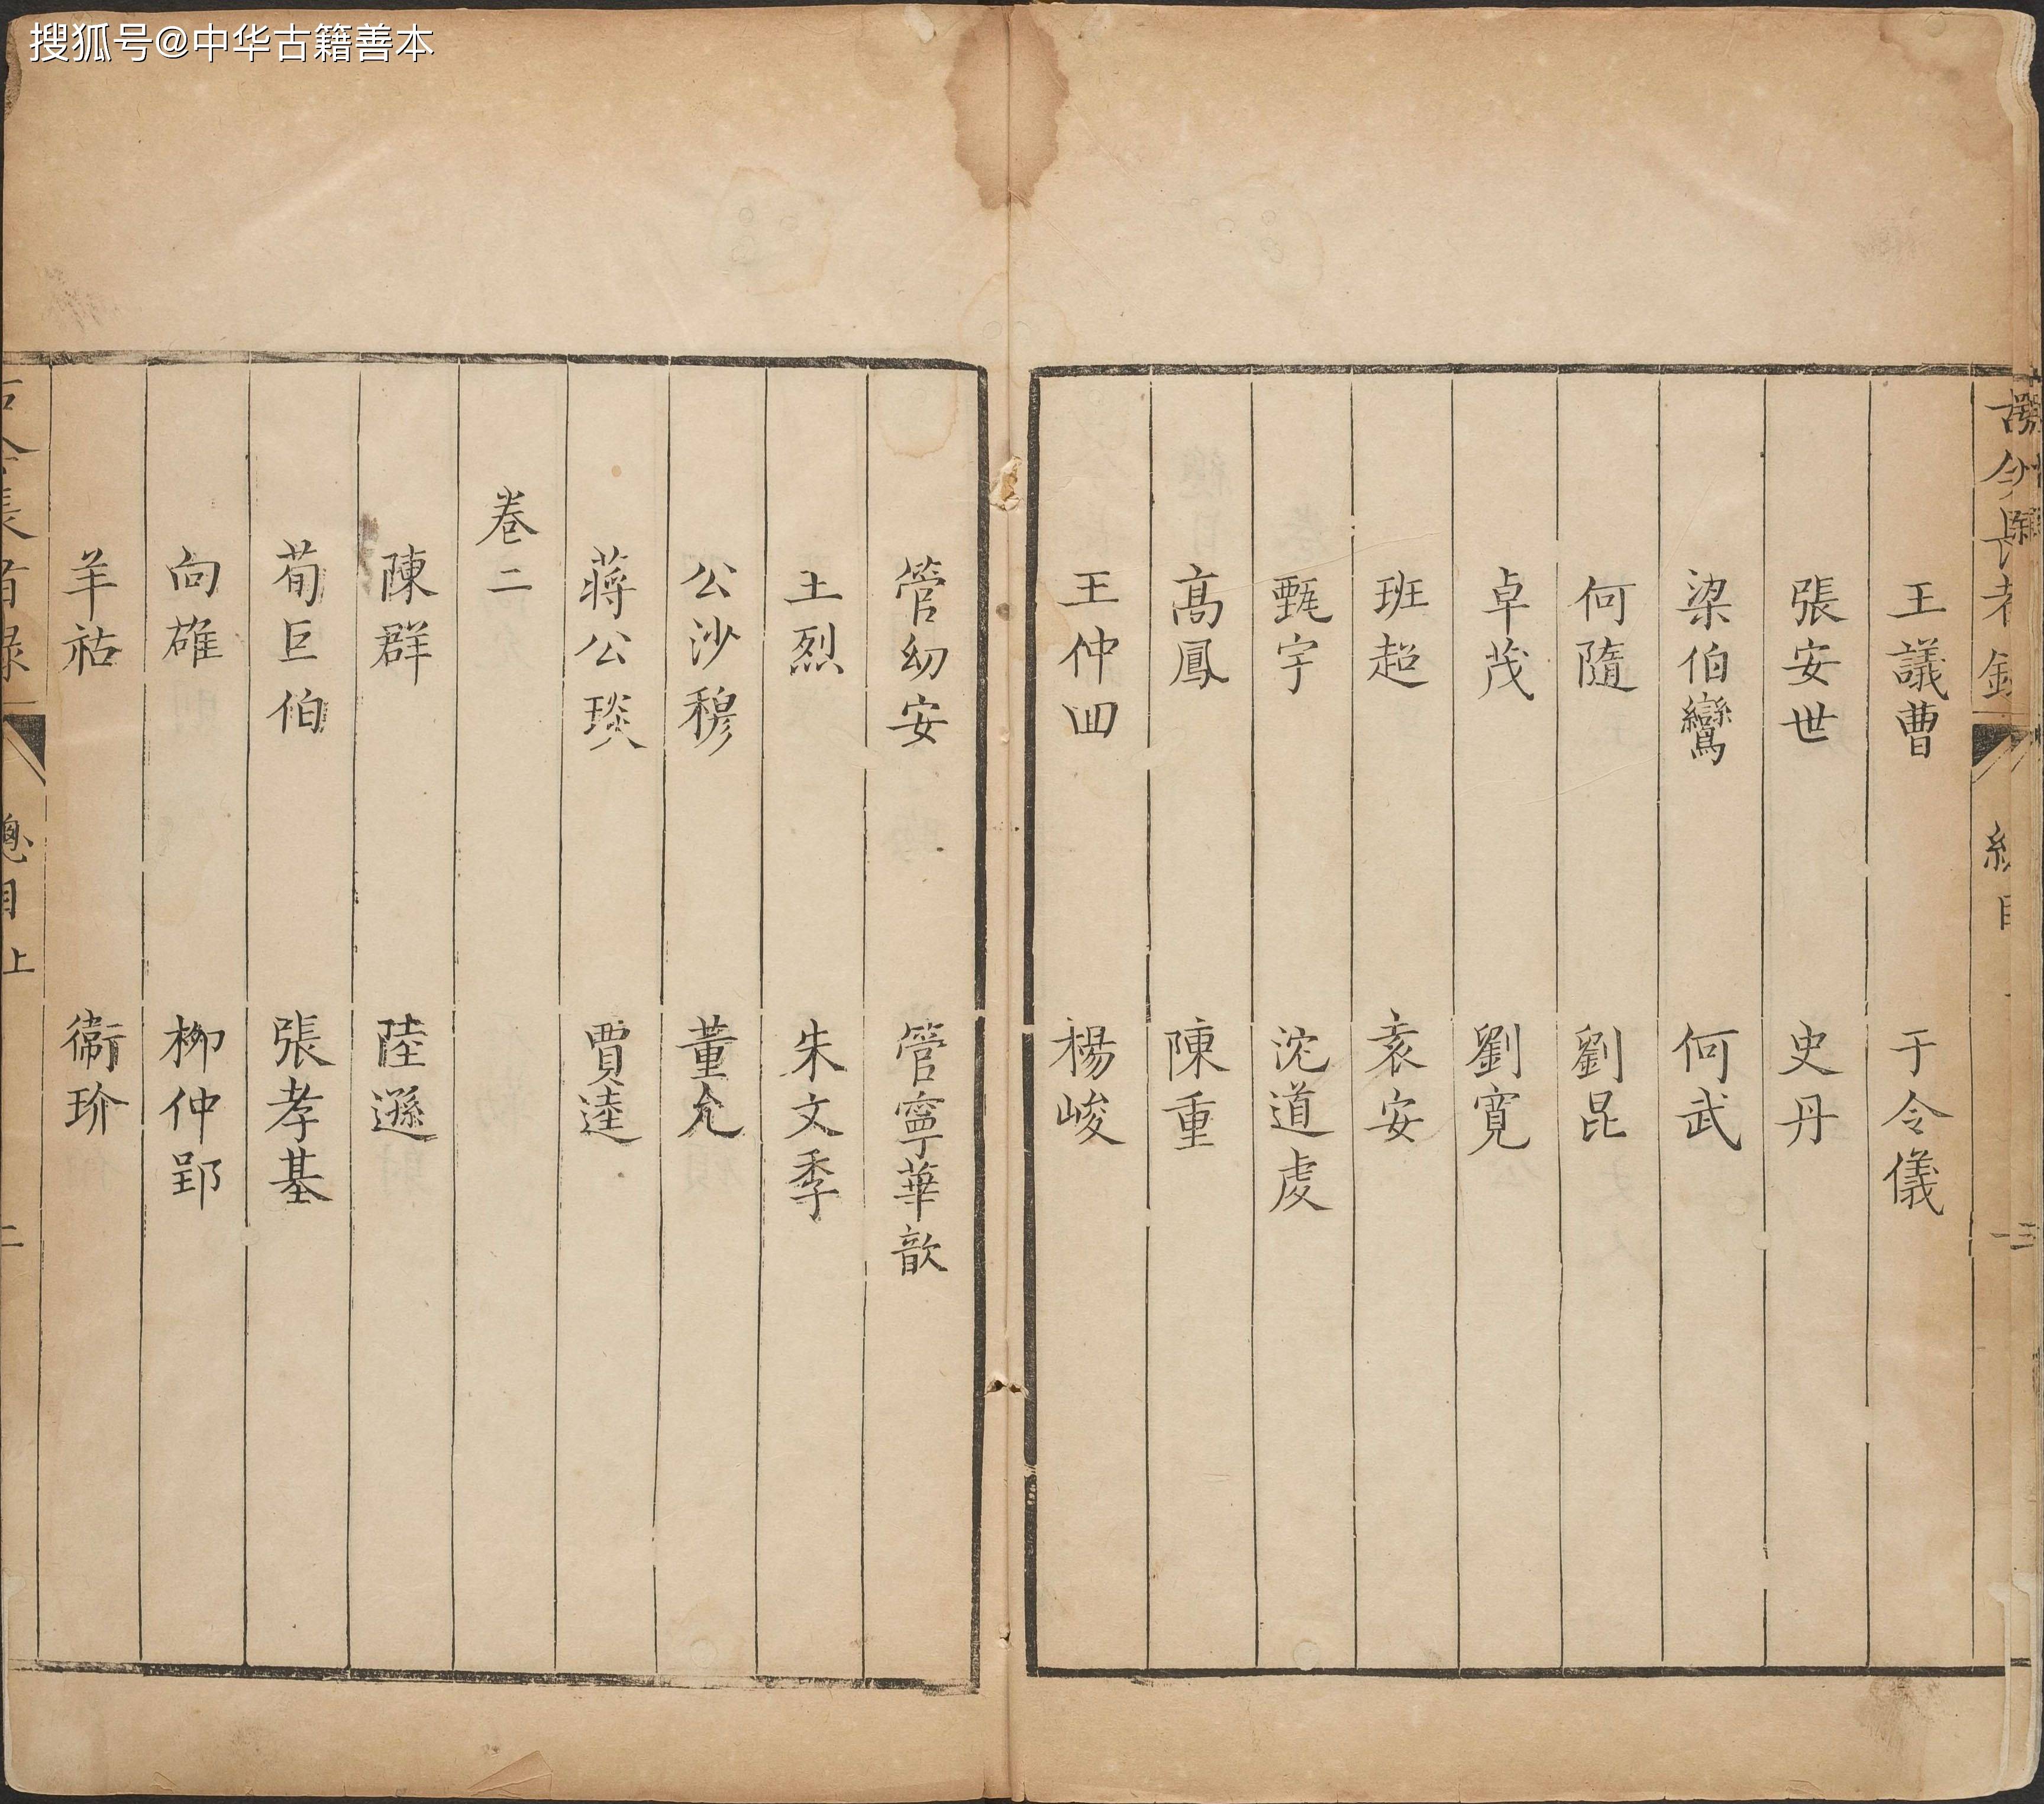 搜狐号@中华古籍善本
王議曹　于令儀
張安世　史丹
梁伯鸞　何武
何隨　劉昆
卓茂　劉寬
班超　袁安
甄宇　沈道虔
高鳳　陳重
王仲回　楊峻
管幼安　管寧華歆
王烈　朱文季
公沙穆　董允
蔣公琰　賈逵
卷二
陳群　陸遜
荀巨伯　張孝基
向雄　柳仲郢
羊祜　衞玠
總目上　二